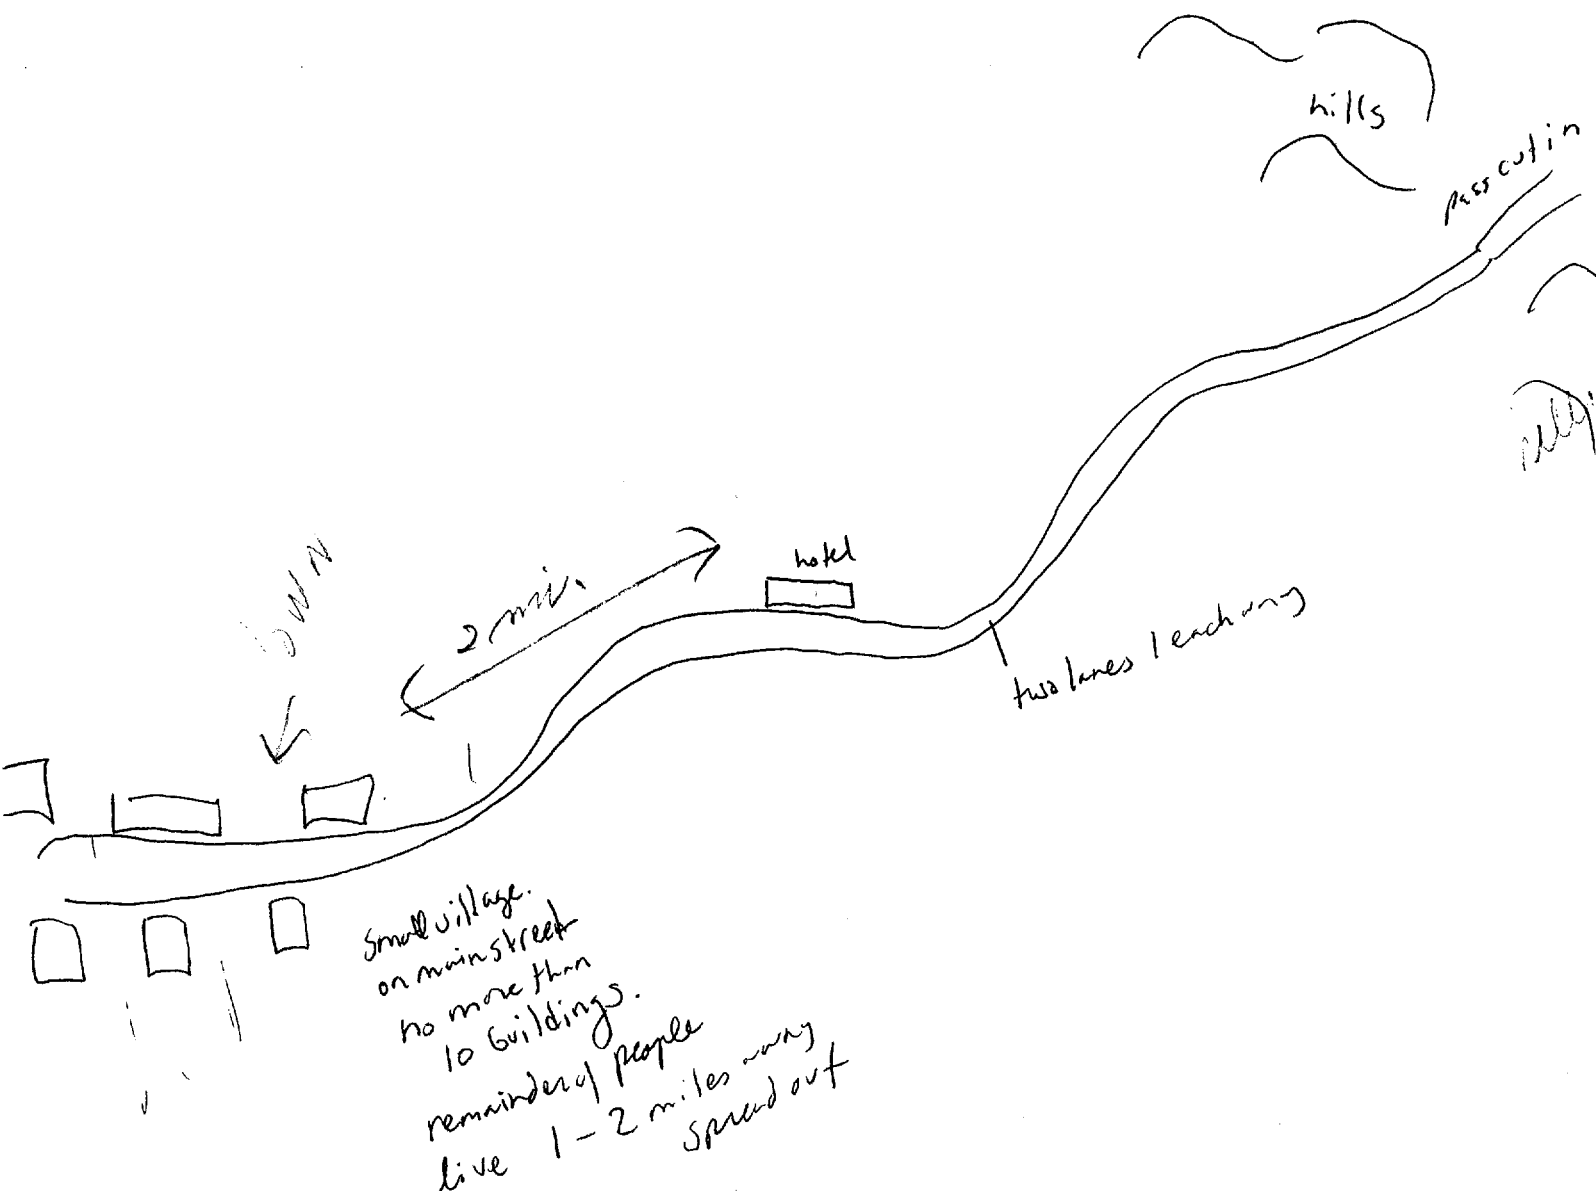 hills
pass cut in
hotel
2 mi.
two lanes 1 each way
small village.
on main street
no more than
10 buildings.
remainder of people
live 1-2 miles away
spread out